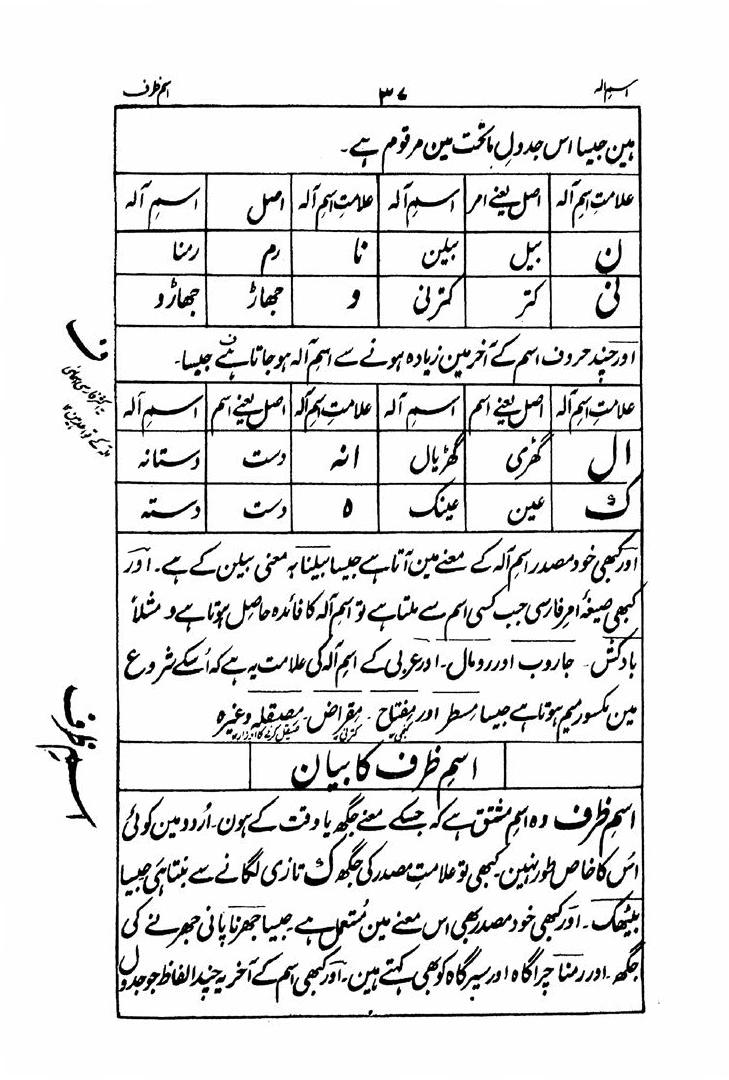 اسم الہ ۳۷ اسم ظرف
ہین جیسا اس جدول ماتحت مین مرقوم ہے۔
علامتِ اسمِ آلہ اصل یعنے امر اسمِ آلہ علامتِ اسمِ آلہ اصل اسمِ آلہ
ن بیل بیلن نا رم رمنا
نی کتر کترنی و جھاڑ جھاڑو
اور چند حروف اسم کے آخر مین زیادہ ہونے سے اسمِ آلہ ہو جاتا ہے ف جیسا۔
علامتِ اسمِ آلہ اصل یعنے اسم اسمِ آلہ علامتِ اسمِ آلہ اصل یعنے اسم اسمِ آلہ
ال گھڑی گھڑیال انہ دست دستانہ
ک عین عینک ہ دست دستہ
اور کبھی خود مصدر اسمِ آلہ کے معنے مین آتا ہے جیسا بیلنا بہ معنی بیلن کے ہے۔ اور
کبھی صیغۂ امرِ فارسی جب کسی اسم سے ملتا ہے تو اسمِ آلہ کا فائدہ حاصل ہوتا ہے مثلاً
بادکش۔ جاروب اور رومال۔ اور عربی کے اسمِ آلہ کی علامت یہ ہے کہ اُسکے شروع
مین مکسور میم ہوتا ہے جیسا مِسطر اور مِفتاح۔ مِقراض۔ مِصقلہ وغیرہ
کنجی کترنی صیقل کرنے کا اوزار
اسمِ ظرف کا بیان
اسمِ ظرف وہ اسمِ مشتق ہے کہ جسکے معنے جگھ یا وقت کے ہون۔ اُردو مین کوئی
اُس کا خاص طور نہین۔ کبھی تو علامتِ مصدر کی جگھ ک تازی لگانے سے بنتا ہی جیسا
بیٹھک۔ اور کبھی خود مصدر بھی اس معنے مین مُستعمل ہے۔ جیسا جھرنا پانی جھرنے کی
جگھ۔ اور رمنا چراگاہ اور سیرگاہ کو بھی کہتے ہین۔ اور کبھی اسم کے آخر یہ چند الفاظ جو جدول
ف
اسمِ ظرف